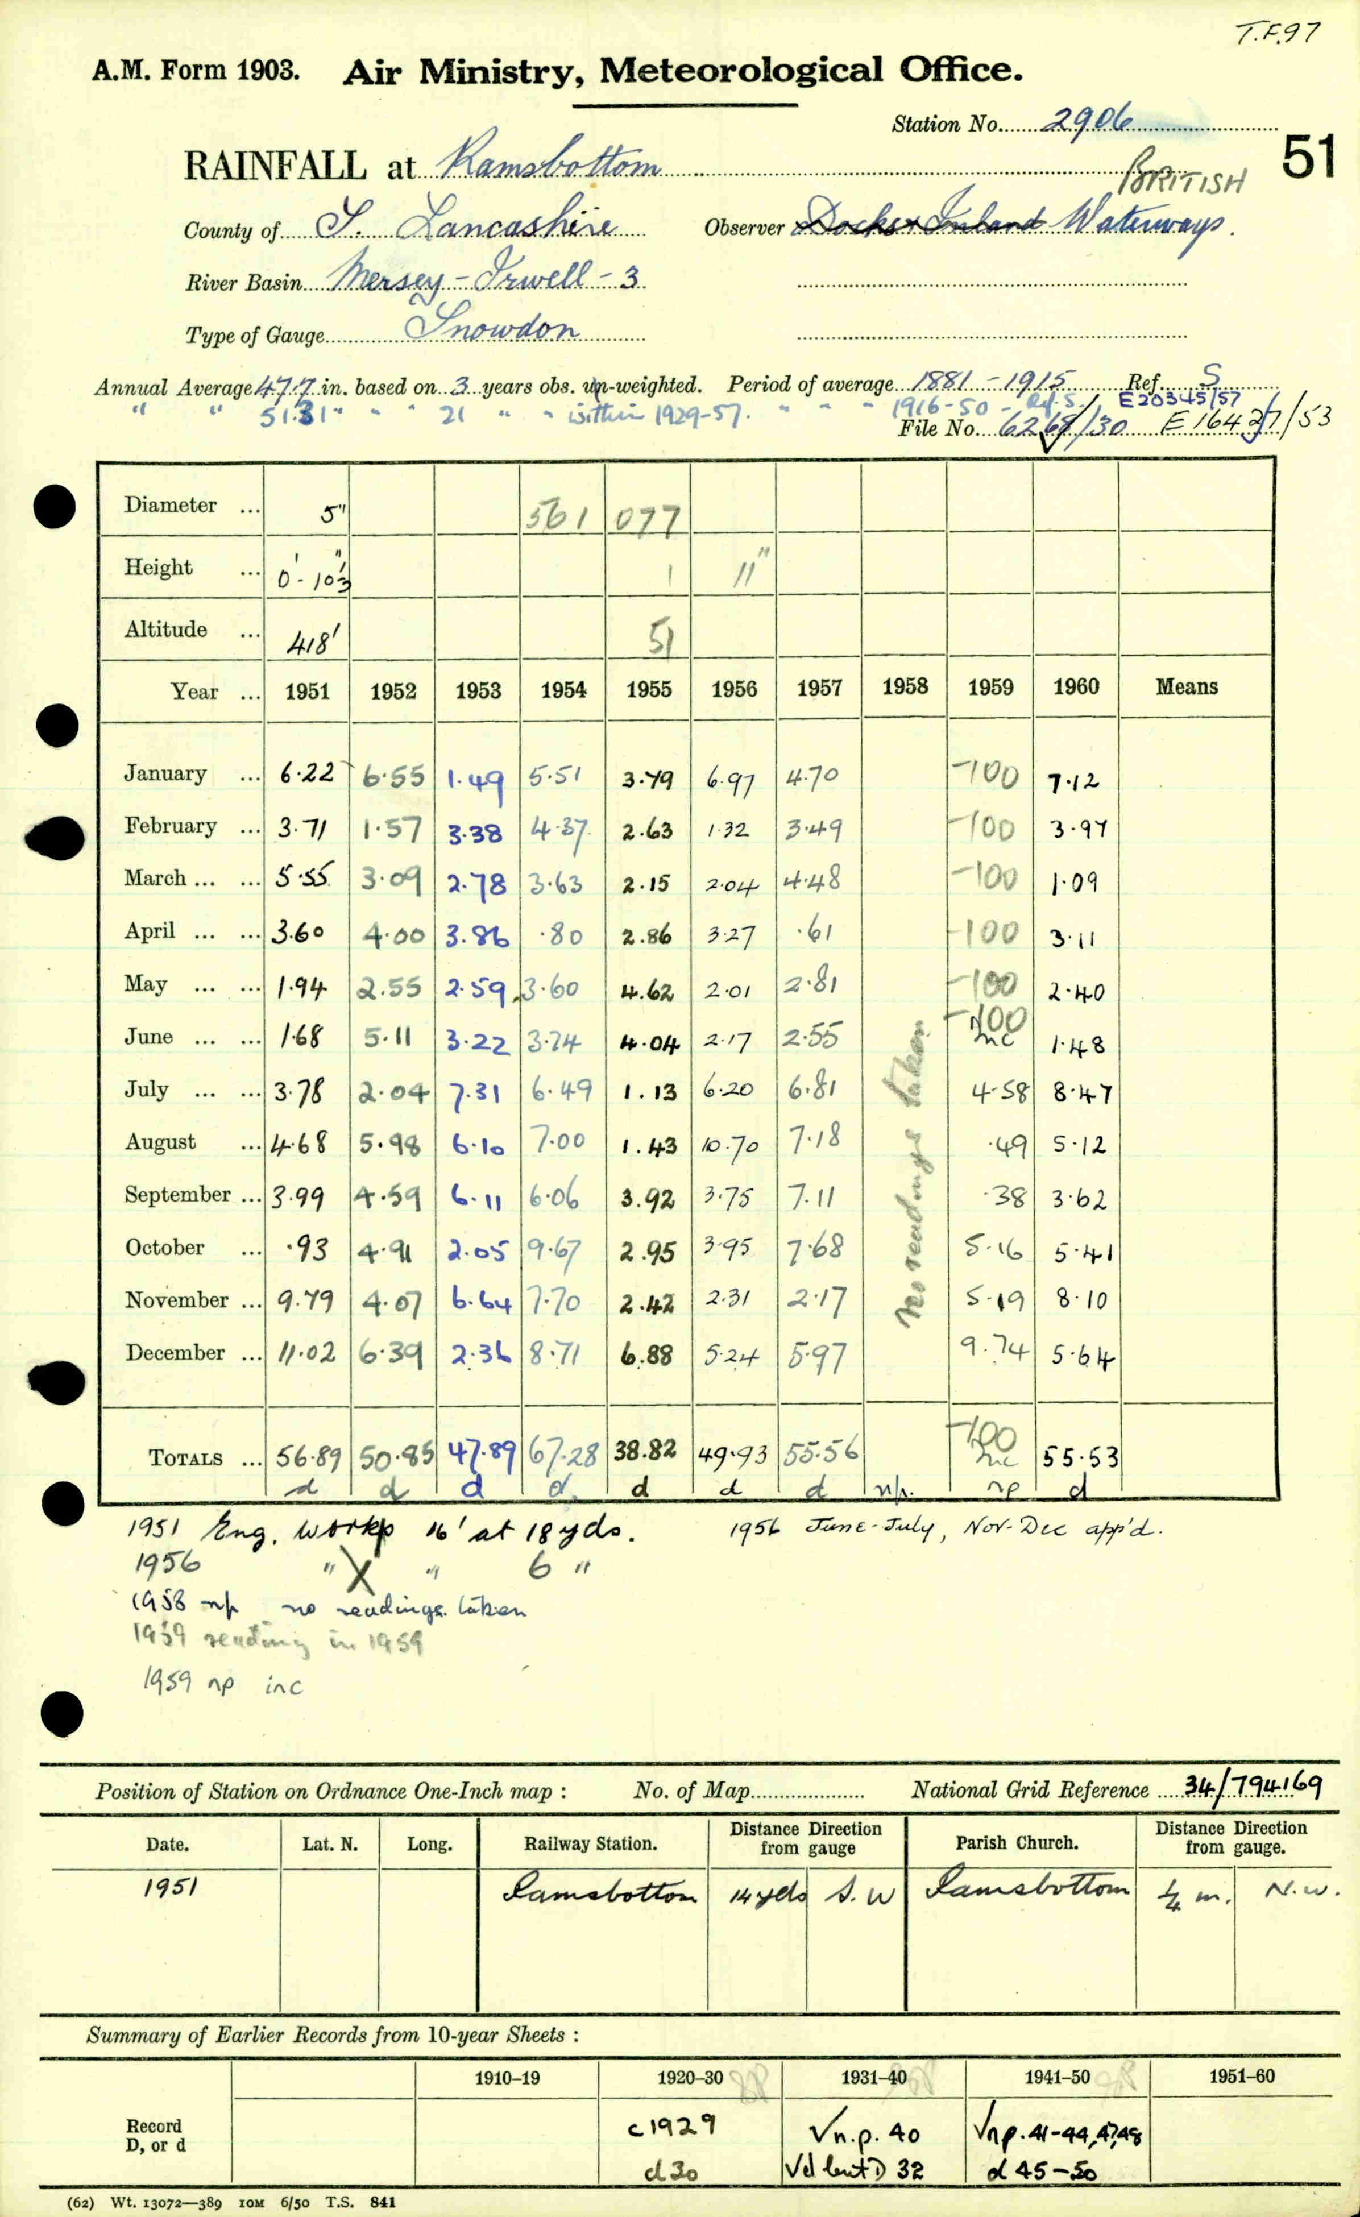 T.F.97
A.M. Form 1903. Air Ministry, Meteorological Office.
Station No. 2906
51
RAINFALL at Ramsbottom
BRITISH
County of S. Lancashire Observer Docks & Inland Waterways.
River Basin Mersey - Irwell - 3
Type of Gauge Snowdon
Annual Average 47.7 in. based on 3 years obs. un-weighted. Period of average 1881-1915 Ref. S
" " 51.31 " " " 21 " " within 1929-57. " " " 1916-50 - Ref. S. E20345/57
File No. 6268/30 E16427/53
Diameter ... 5" 561 077
Height ... 0'-10 1/3" 1 11"
Altitude ... 418' 51
Year ... 1951 1952 1953 1954 1955 1956 1957 1958 1959 1960 Means
January ... 6.22 6.55 1.49 5.51 3.79 6.97 4.70 -100 7.12
February ... 3.71 1.57 3.38 4.37 2.63 1.32 3.49 -100 3.97
March ... ... 5.55 3.09 2.78 3.63 2.15 2.04 4.48 -100 1.09
April ... ... 3.60 4.00 3.86 .80 2.86 3.27 .61 -100 3.11
May ... ... 1.94 2.55 2.59 3.60 4.62 2.01 2.81 -100 2.40
June ... ... 1.68 5.11 3.22 3.74 4.04 2.17 2.55 -100 inc 1.48
July ... ... 3.78 2.04 7.31 6.49 1.13 6.20 6.81 4.58 8.47
August ... 4.68 5.98 6.10 7.00 1.43 10.70 7.18 .49 5.12
September ... 3.99 4.59 6.11 6.06 3.92 3.75 7.11 .38 3.62
October ... .93 4.91 2.05 9.67 2.95 3.95 7.68 5.16 5.41
November ... 9.79 4.07 6.64 7.70 2.42 2.31 2.17 5.19 8.10
December ... 11.02 6.39 2.36 8.71 6.88 5.24 5.97 9.74 5.64
No readings taken
TOTALS ... 56.89 50.85 47.89 67.28 38.82 49.93 55.56 -100 inc 55.53
d d d d d d d np. np d
1951 Eng. Works 16' at 18 yds. 1956 June-July, Nov-Dec app'd.
1956 " X " 6 "
1958 np no readings taken
1959 reading in 1959
1959 np inc
Position of Station on Ordnance One-Inch map : No. of Map National Grid Reference 34/794169
Date. Lat. N. Long. Railway Station. Distance Direction from gauge Parish Church. Distance Direction from gauge.
1951 Ramsbottom 14 yds S.W Ramsbottom 1/4 m. N.W.
Summary of Earlier Records from 10-year Sheets :
1910–19 1920–30 1931–40 1941–50 1951–60
Record D, or d c1929 Vn.p. 40 Vnp. 41-44, 47, 48
d 30 Vd but D 32 d 45-50
(62) Wt. 13072—389 10M 6/50 T.S. 841